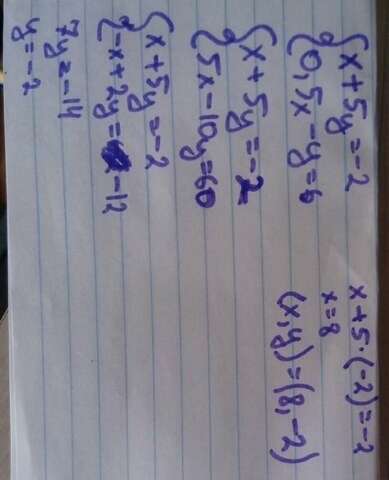 x + 5y = -2
0,5x - y = 6
x + 5y = -2
5x - 10y = 60
x + 5y = -2
-x + 2y = -12
7y = -14
y = -2
x + 5·(-2) = -2
x = 8
(x, y) = (8, -2)